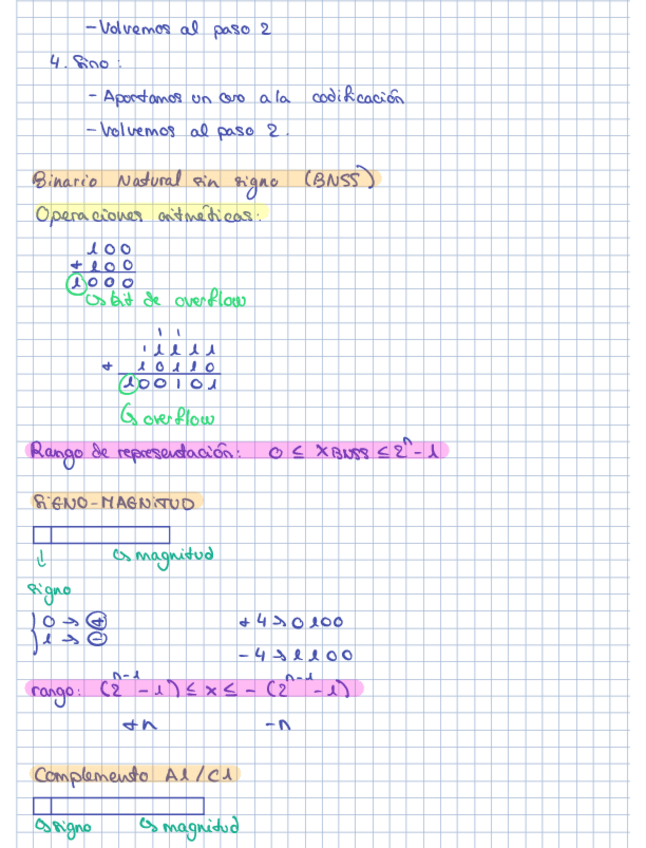 - Volvemos al paso 2
4. Sino:
- Aportamos un cero a la codificación
- Volvemos al paso 2.
Binario Natural sin signo (BNSS)
Operaciones aritméticas:
100
+ 100
1000
↳ bit de overflow
1 1
1 1111
+ 10110
100101
↳ overflow
Rango de representación: 0 ≤ XBNSS ≤ 2ⁿ - 1
SIGNO-MAGNITUD
↓ ↳ magnitud
signo
0 → + +4 → 0100
1 → - -4 → 1100
rango: (2ⁿ⁻¹ - 1) ≤ x ≤ - (2ⁿ⁻¹ - 1)
+n -n
Complemento A1/C1
↳ signo ↳ magnitud